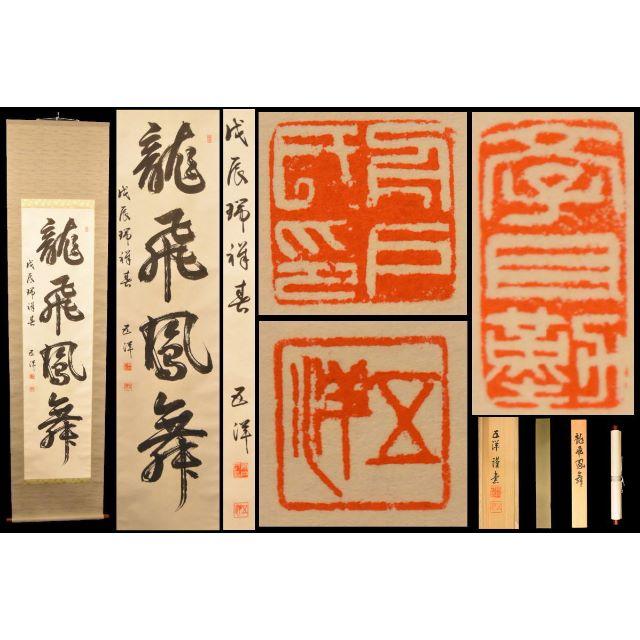 龍飛鳳舞
戊辰瑞祥春 五洋
龍飛鳳舞
戊辰瑞祥春 五洋
戊辰瑞祥春 五洋
五洋
五洋謹書
龍飛鳳舞